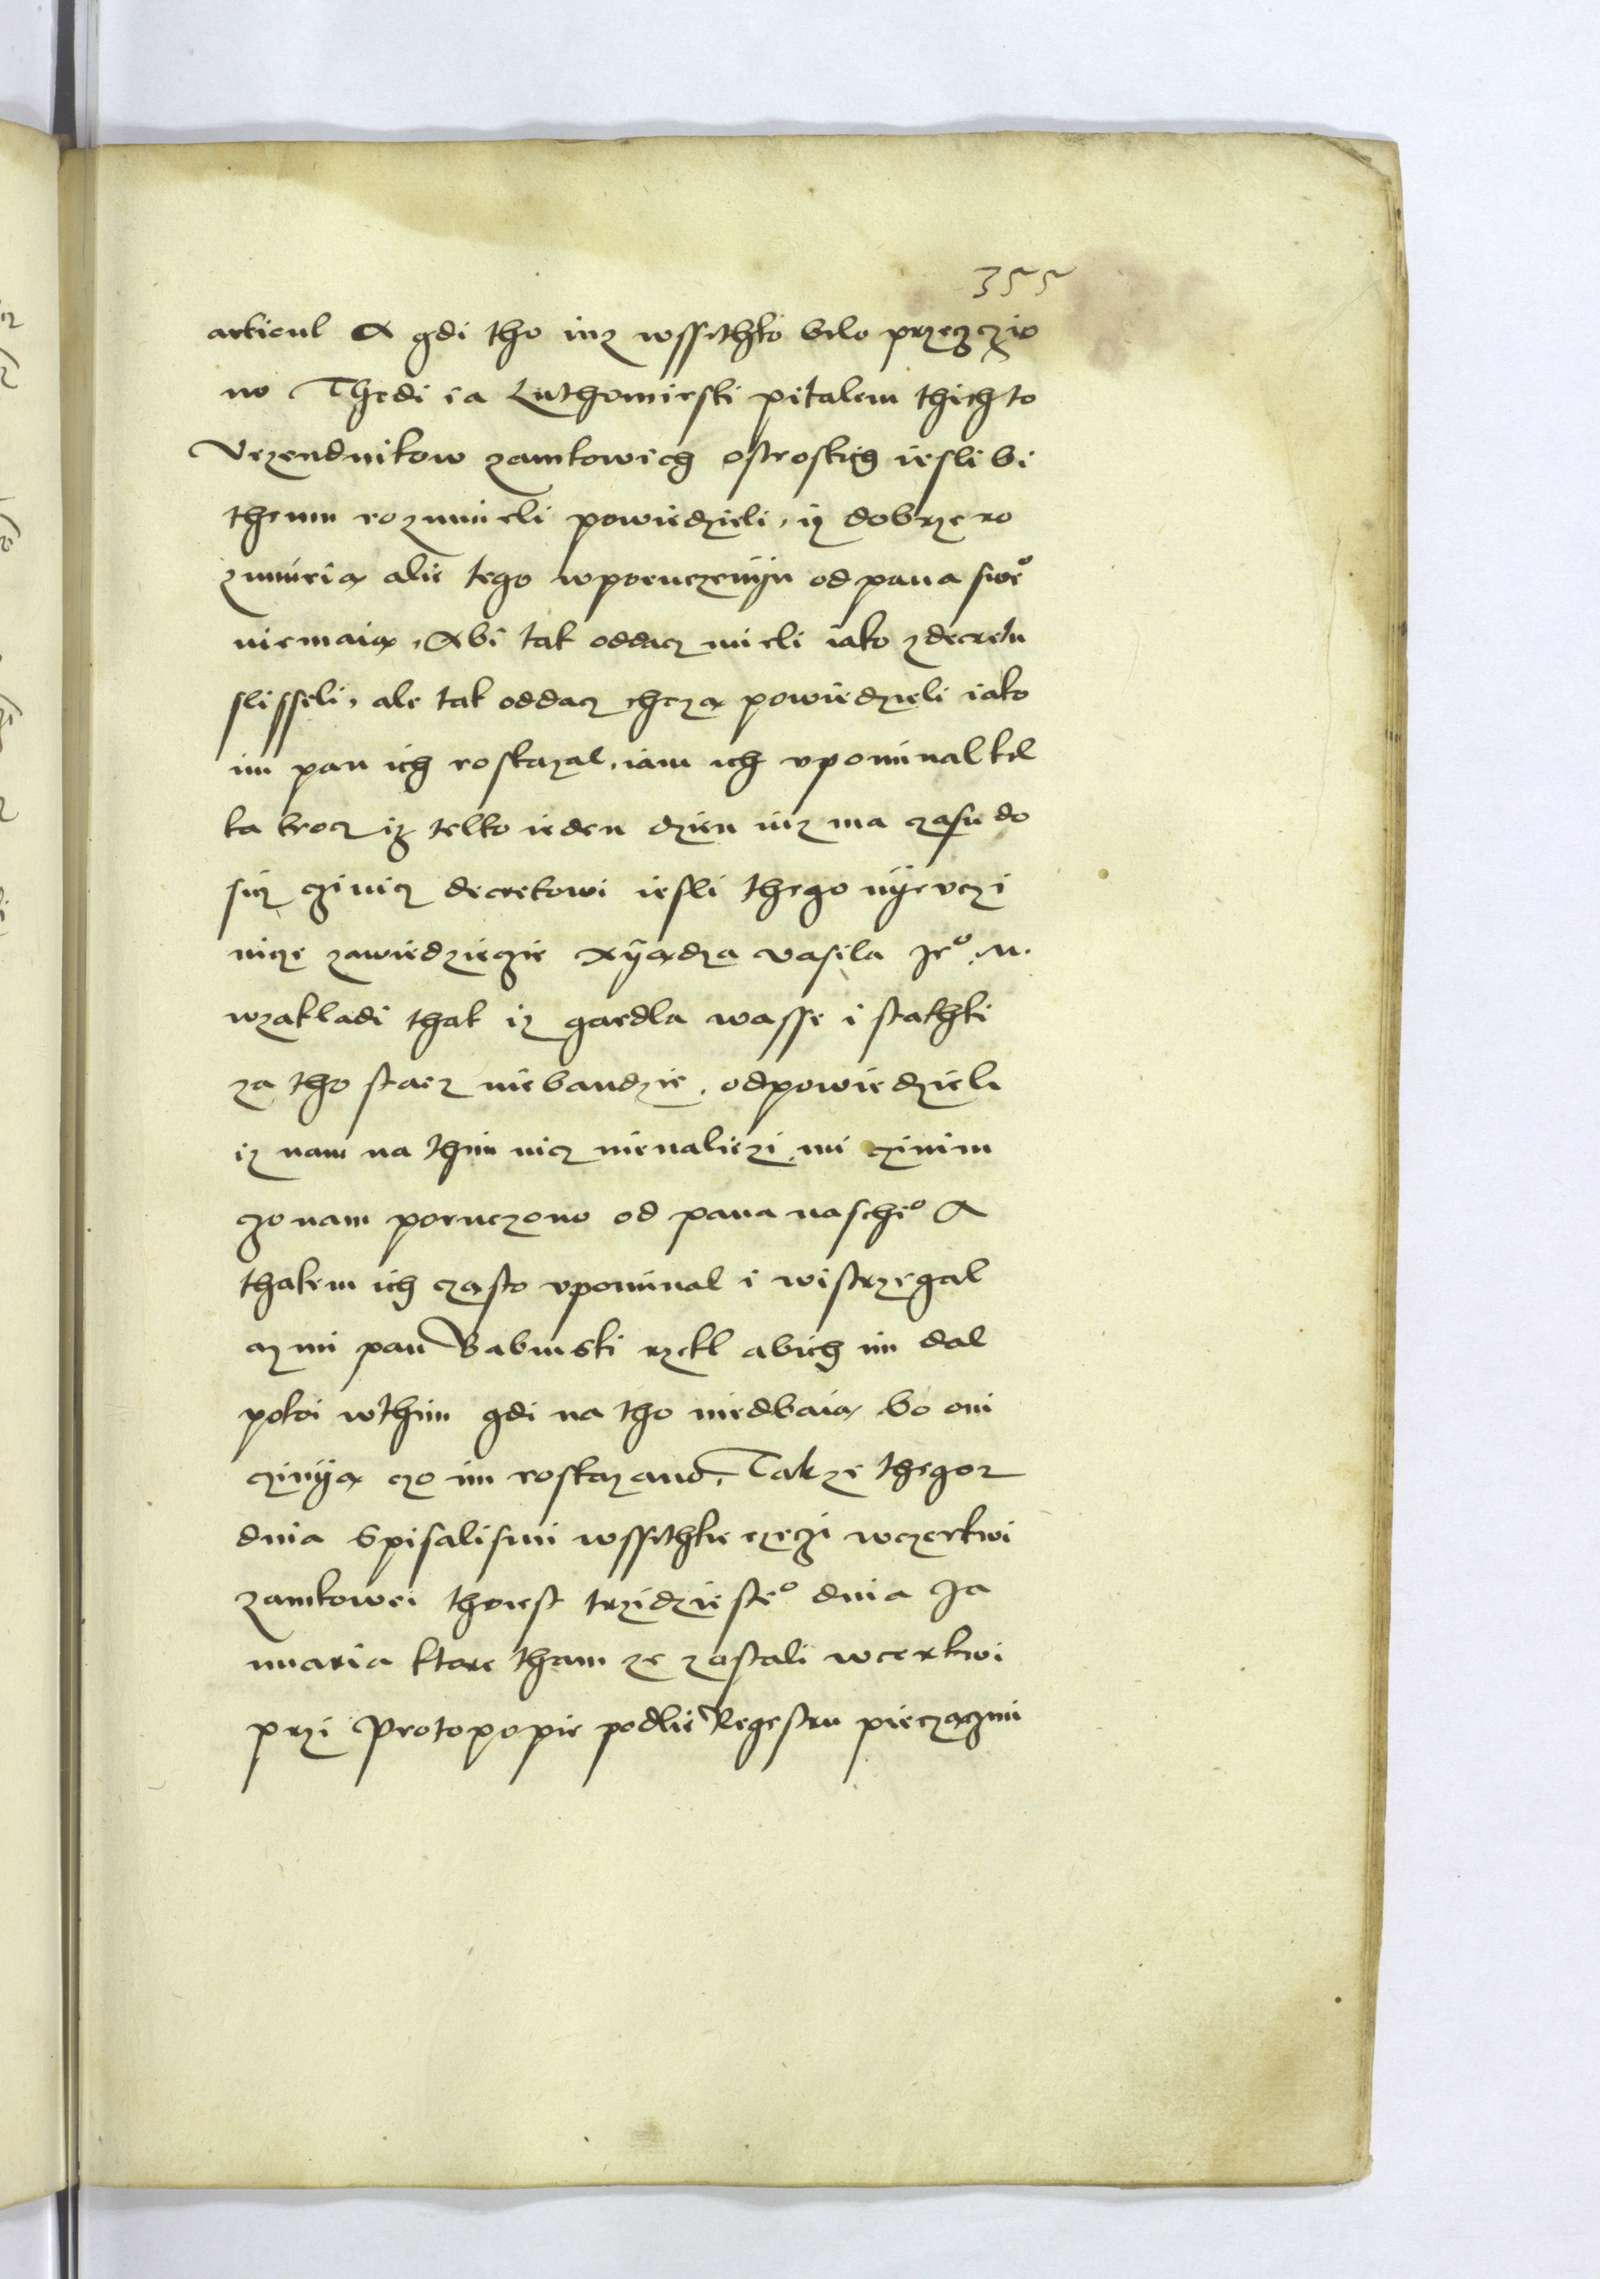 355
articul A gdi tho iuz wssithko bilo przeczczio
no Thedi ia Luthomirski pitalem thich to
Vrzendnikow zamkowich ostroskich iesli bi
themu rozumieli powiedzieli, iz dobrze ro
zumieią alie tego wporuczenyu od pana swe°
niemaią, Abi tak oddacz mieli iako zdecretu
slisseli, ale tak oddacz chczą powiedzieli iako
im pan ich roskazal, iam ich vpominal kil
ka krocz iz telko ieden dzien iuz ma czasu do
sicz czinicz decretowi iesli thego nye vczi
nicze zawiedziecie xyądza Vasila Je° M.
wzakladi thak iz gardla wasse i stathki
za tho stacz niebandzie. odpowiedzieli
iz nam na thim nicz nienaliezi mi czinim
czo nam poruczono od pana nasche° A
thakem ich czasto vpominal i wistrzegal
az mi pan Babinski rzekl abich im dal
pokoi wthim gdi na tho niedbaią bo oni
czinyą czo im roskazano, Takze thegoz
dnia Spisalismi wssithkie rzeczi wczerkwi
zamkowei thoiest trzidzieste° dnia Ja
nuaria ktore tham ze zostali wcerkwi
przi Protopopie podlie Regestru pieczączmi